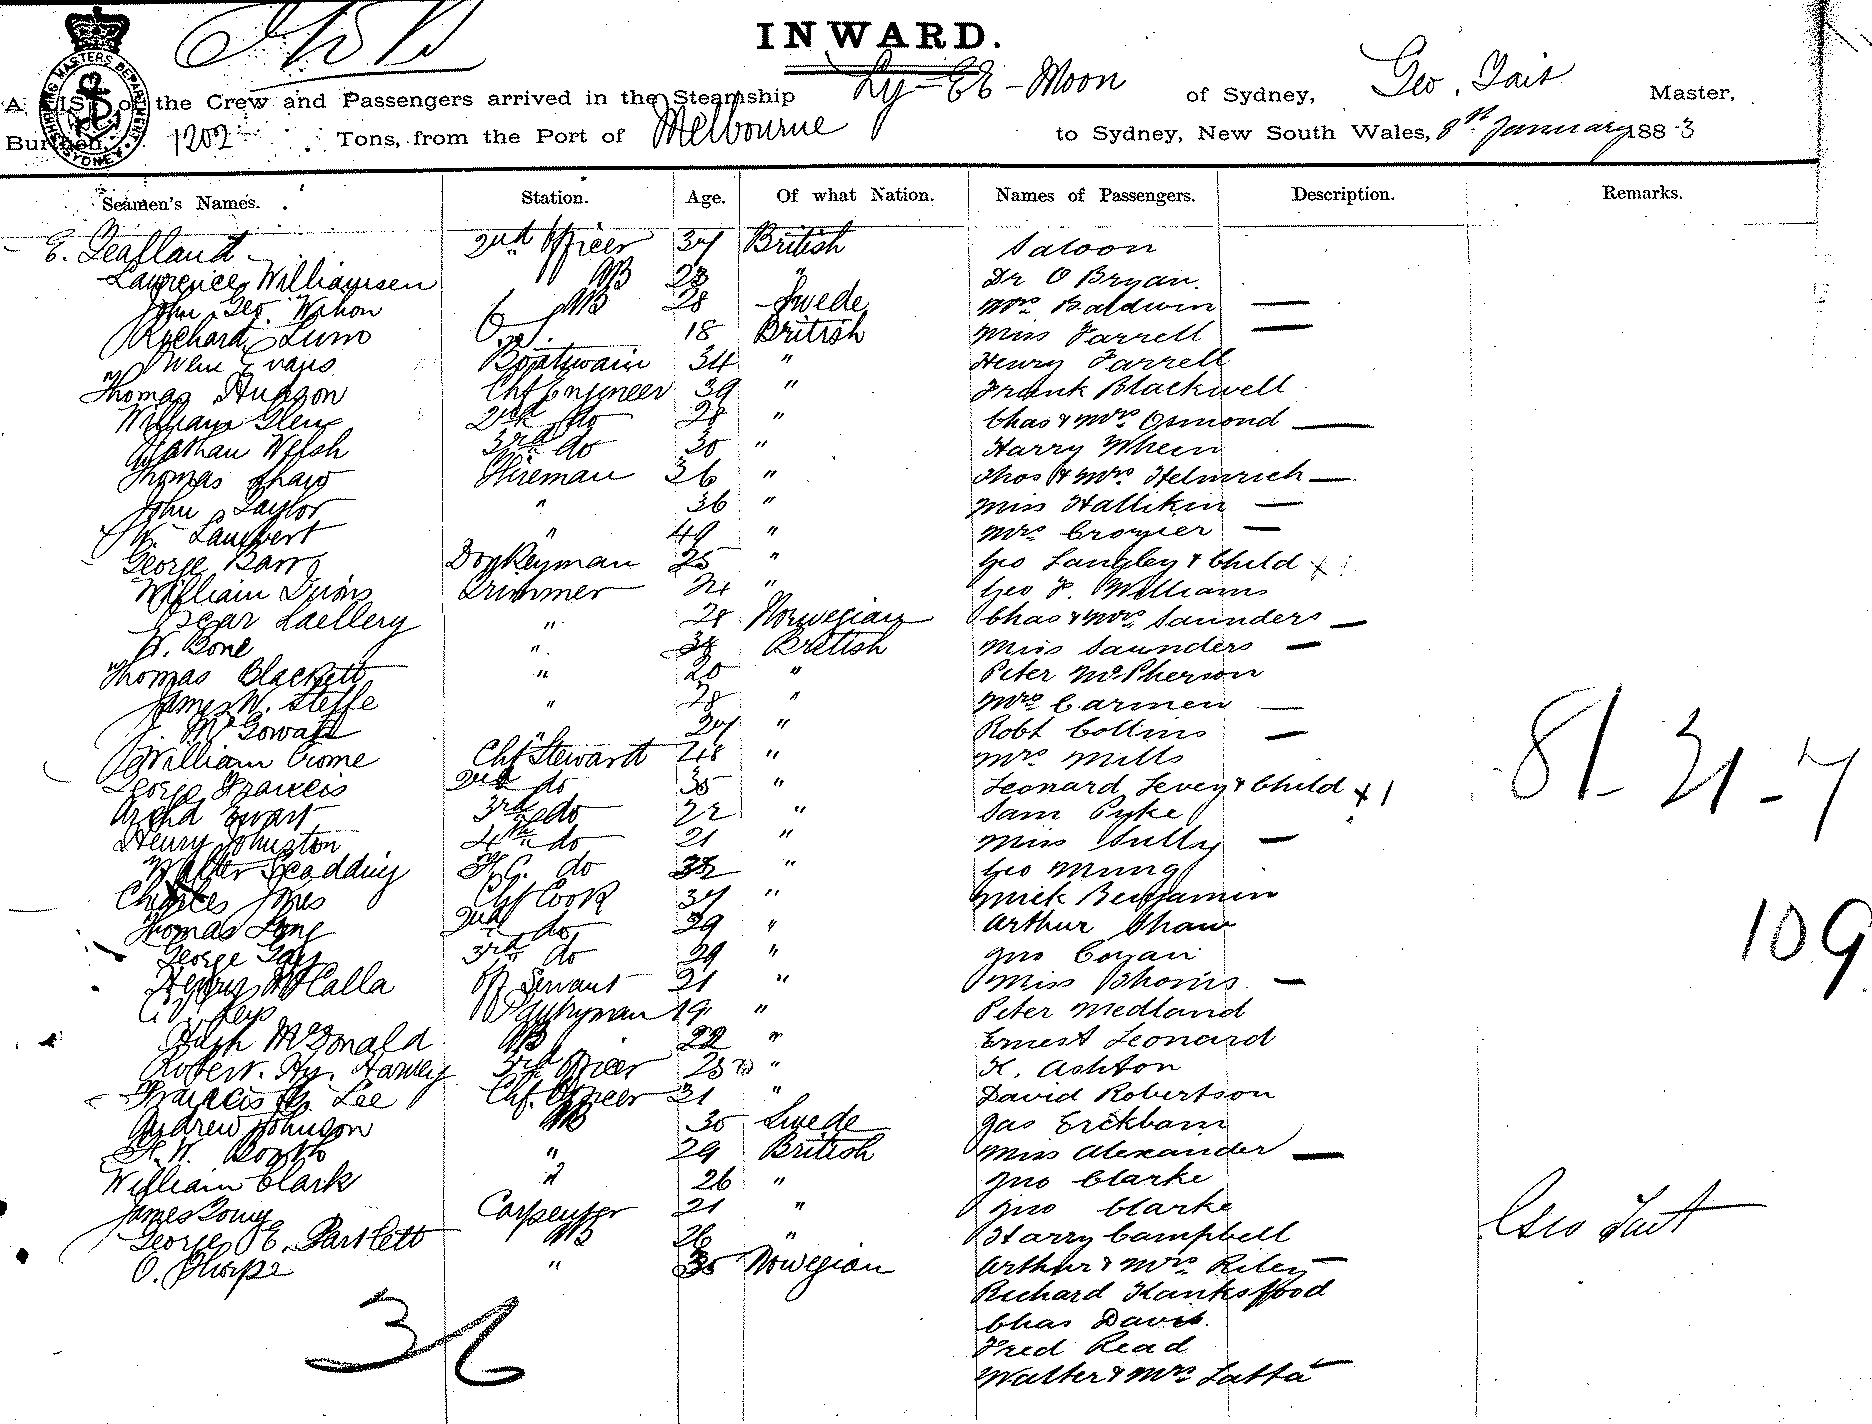 INWARD.
A LIST of the Crew and Passengers arrived in the Steamship Ly-EE-Moon of Sydney, Geo. Tait Master,
Burthen, 1202 Tons, from the Port of Melbourne to Sydney, New South Wales, 8th January 1883
Seamen's Names. Station. Age. Of what Nation. Names of Passengers. Description. Remarks.
2nd Officer 37 British Saloon
Lawrence Williamsen AB 28 " Dr O Bryan.
John Geo. AB 28 Swede Mrs Baldwin —
Richard O.S. 18 British Miss Farrell —
Owen Evans Boatswain 34 " Henry Farrell
Thomas Hudson Chf Engineer 39 " Frank Blackwell
William Glen 2nd do 28 " Chas & Mrs Osmond —
Nathan Welsh 3rd do 30 " Harry Wheen
Thomas Shaw Fireman 36 " Thos & Mrs Helmrich —
John Taylor " 36 " Miss Halliken —
W. Lambert " 49 " Mrs Crozier —
George Barr Donkeyman 25 " Geo Langley & Child +
William Trimmer 24 " Geo F. Williams
Oscar " 28 Norwegian Chas & Mrs Saunders —
W. Bone " 38 British Miss Saunders —
Thomas Blackett " 20 " Peter McPherson
James W. " 28 " Mrs Carmen —
J. McGowan " 27 " Robt Collins
William Crome Chf Steward 48 " Mrs Mills —
George Francis 2nd do 30 " Leonard Levey & Child + 1
Archd Ewart 3rd do 22 " Sam Pyke
Henry Johnston 4th do 21 " Miss Sully —
Walter Scadding F.C. do 32 " Geo
Charles Jones Chf Cook 37 " Mick Benjamin
Thomas 2nd do 29 " Arthur Shaw
George Gay 3rd do 29 " Jno
McCalla Servant 21 " Miss —
Pantryman 19 " Peter Medland
Hugh McDonald AB 22 " Ernest Leonard
Robert. Hy. Harvey 3rd Officer 23 " K. Ashton
Francis Lee Chf. Officer 31 " David Robertson
Andrew Johnson AB 30 Swede Jas
W. Booth " 29 British Miss Alexander —
William Clark " 26 " Jno Clarke
James Carpenter 21 " Jno Clarke
George E. Bartlett AB 26 " Harry Campbell
O. Thorpe " 30 Norwegian Arthur & Mrs Riley —
Richard
Chas Davis.
Fred Read
Walter & Mrs Latta —
36
81-21-7
109
Geo Tait